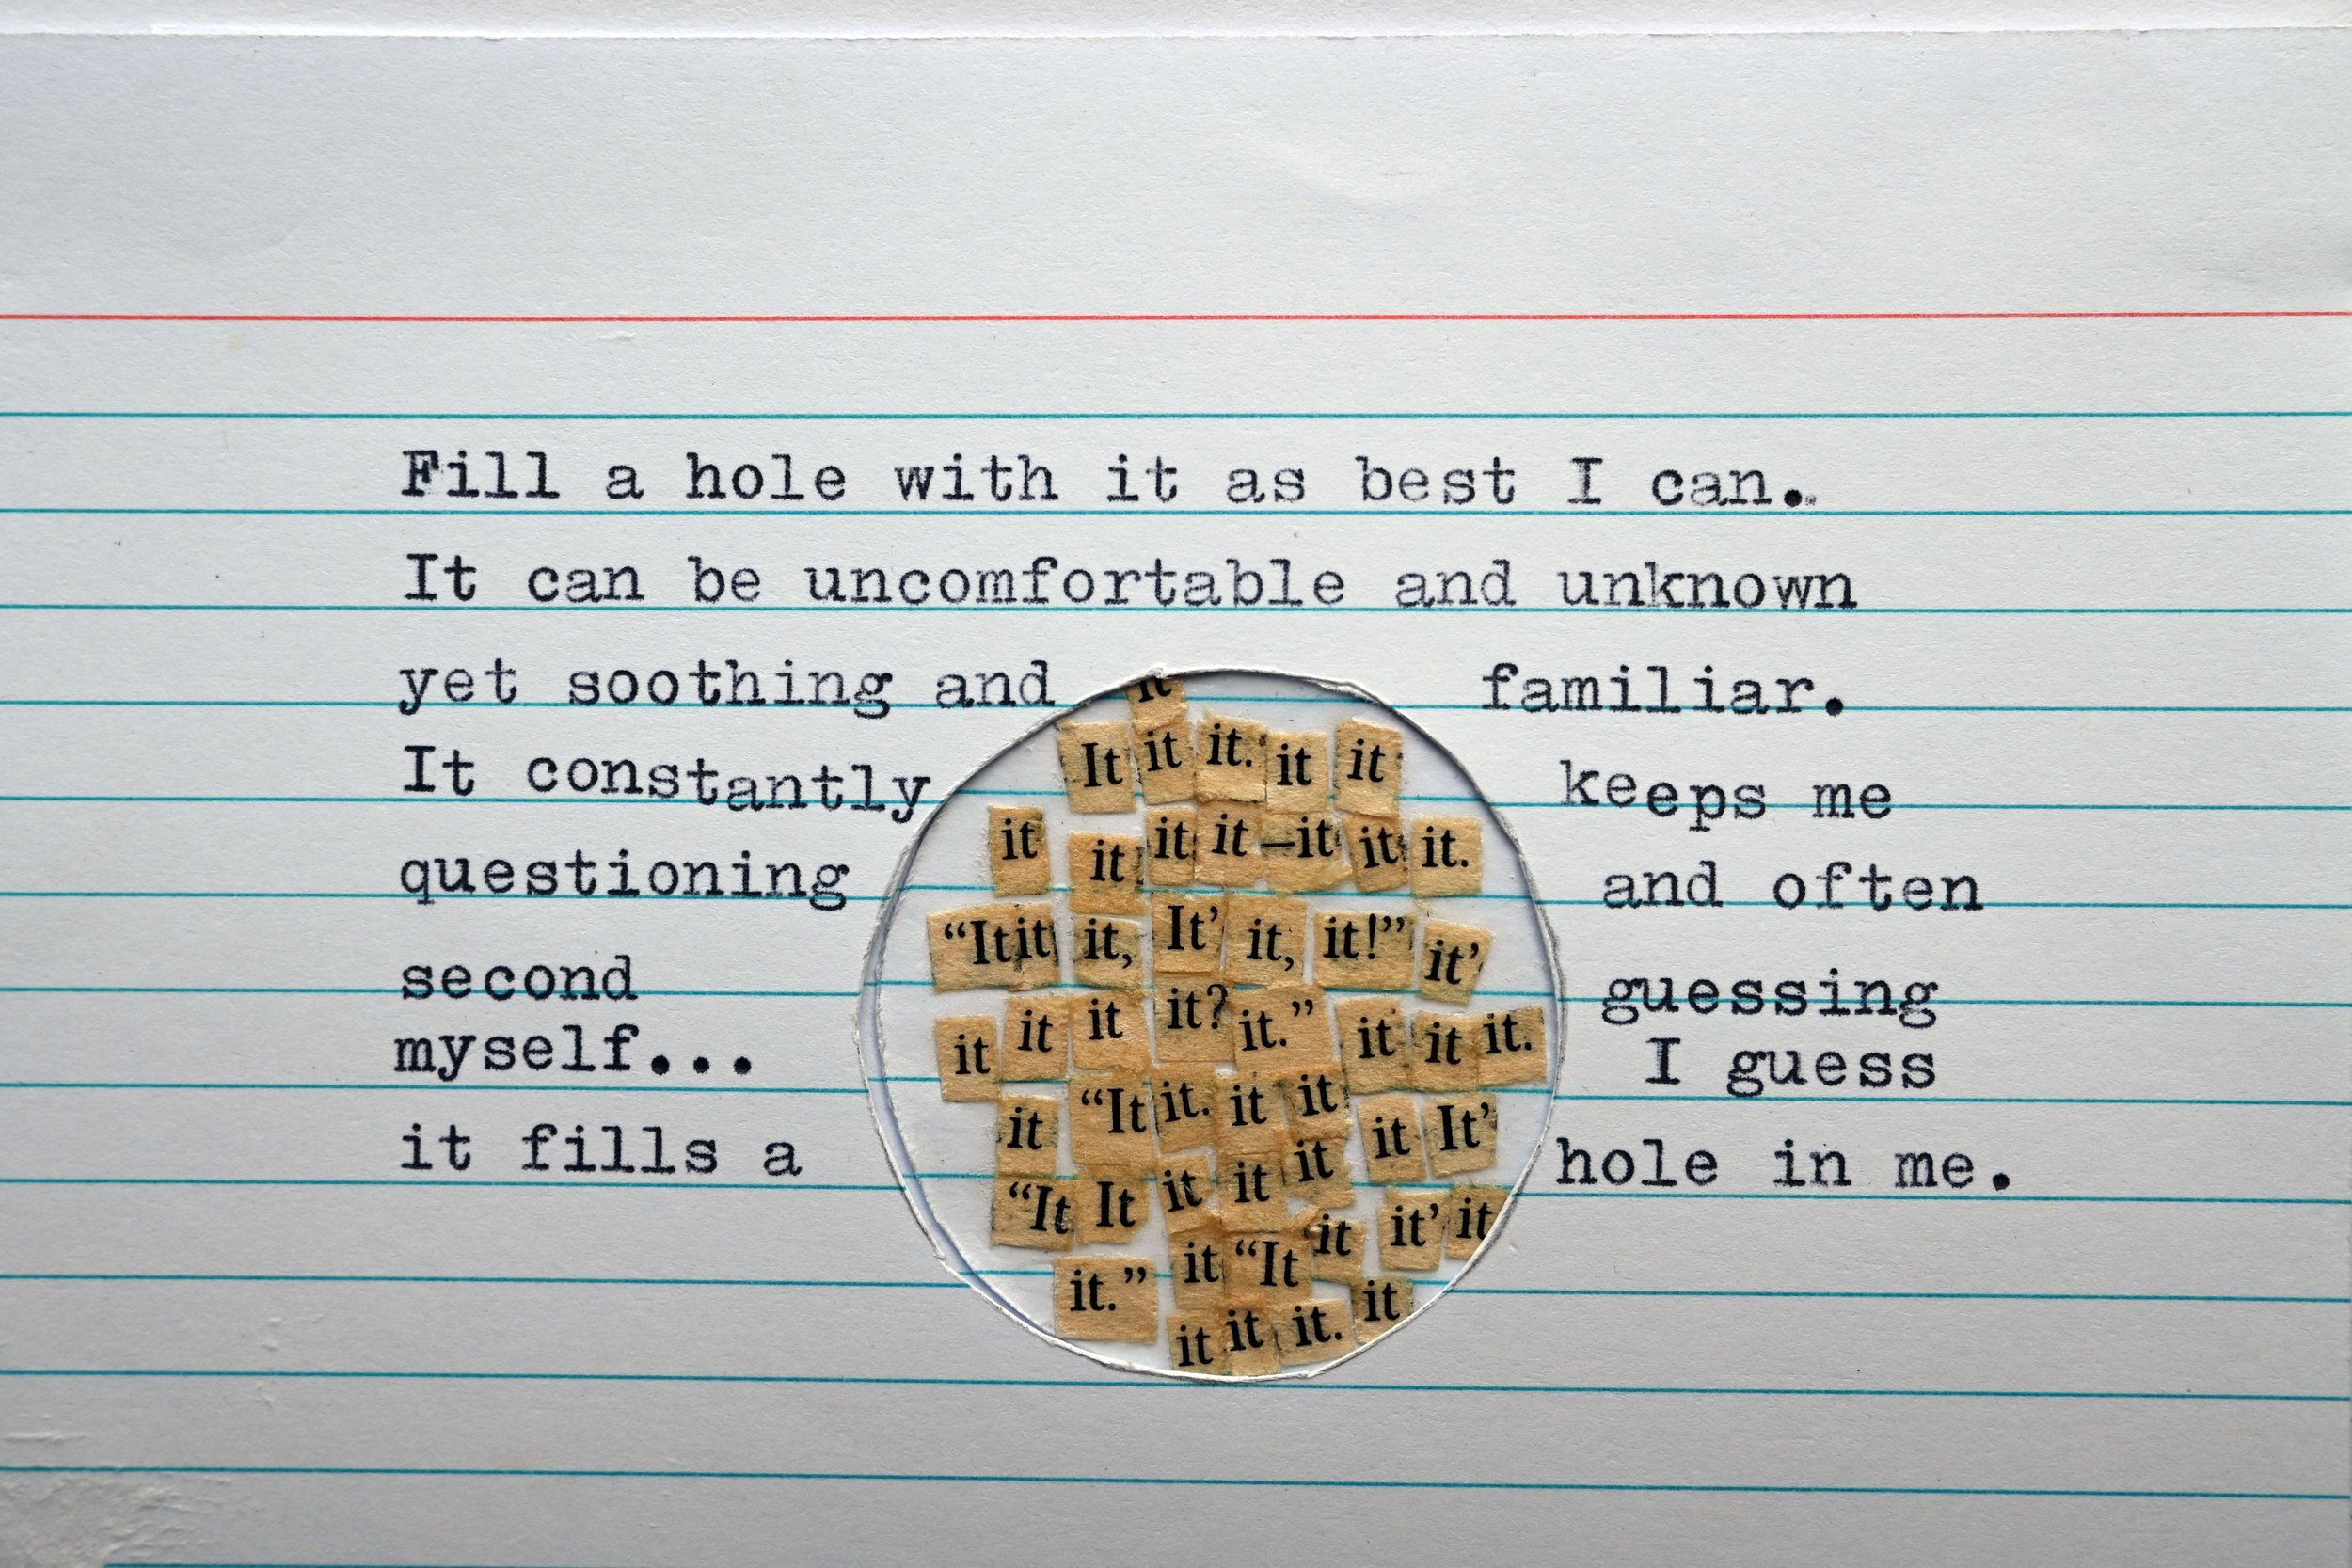 Fill a hole with it as best I can.
It can be uncomfortable and unknown
yet soothing and familiar.
It constantly keeps me
questioning and often
second guessing
myself... I guess
it fills a hole in me.
it
It it it. it it
it it it it —it it it.
“It it it, It’ it, it!” it’
it it it it? it.” it it it.
it “It it. it it it It’
“It It it it it
it “It it it’ it
it.” it it it. it